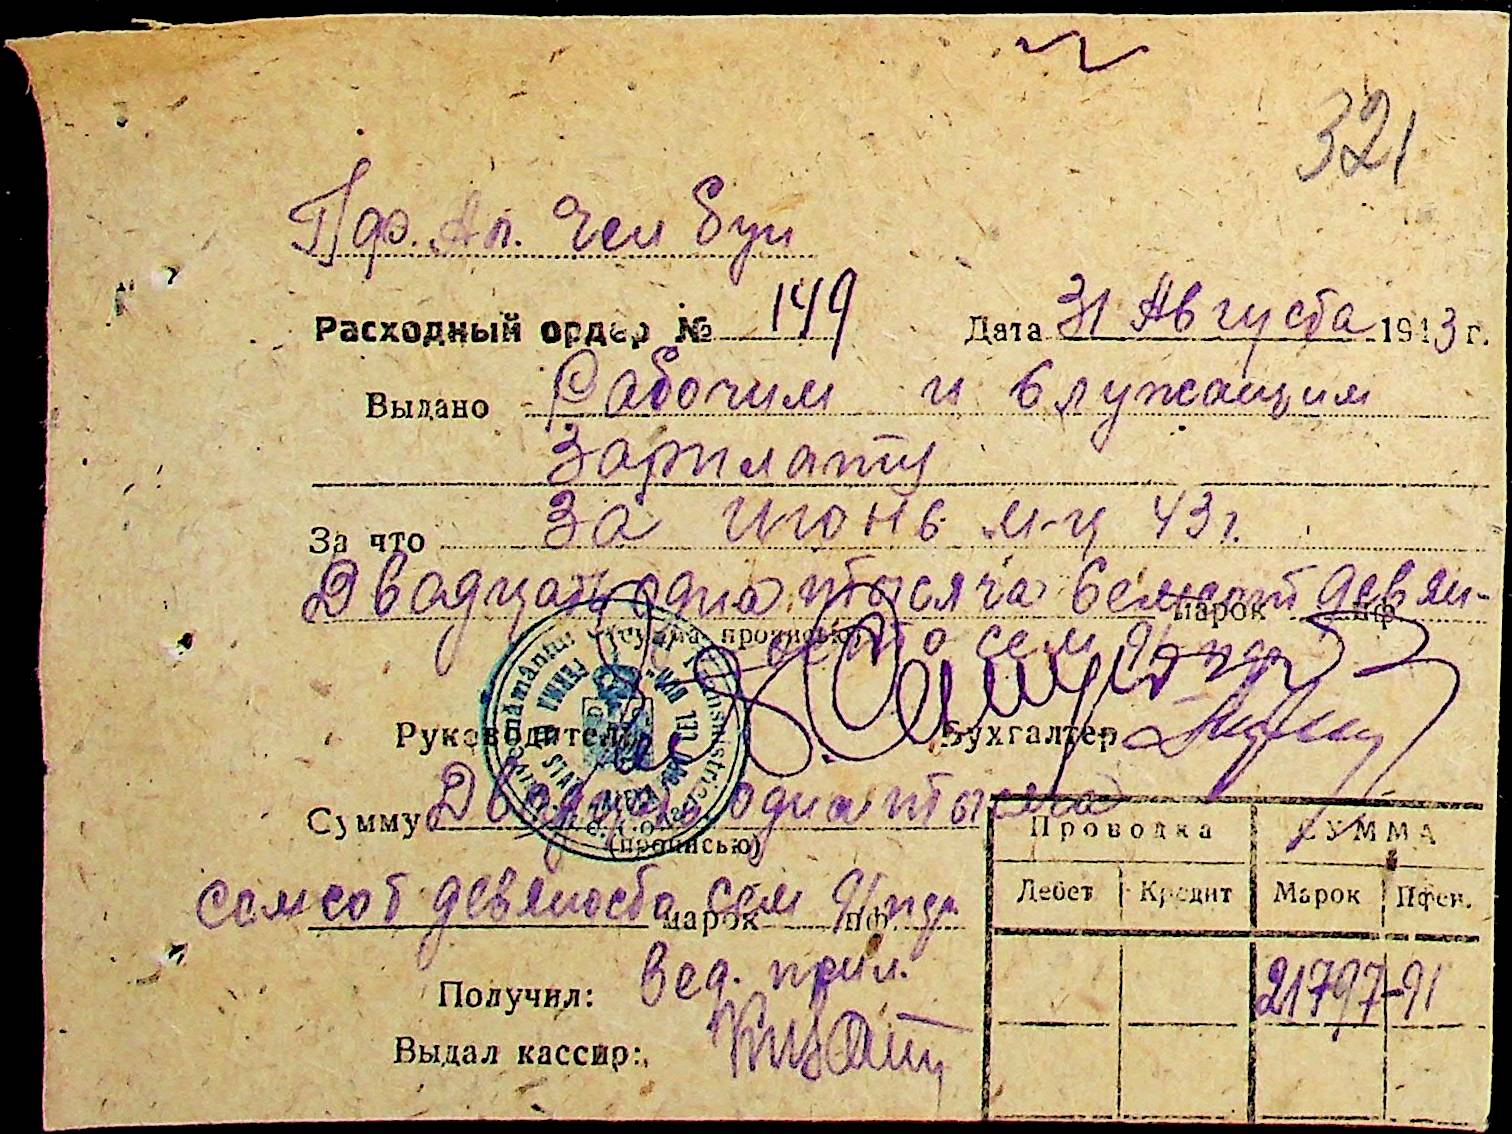 321
Пдр. Ап. Чел Бун
Расходный ордер № 149 Дата 31 Августа 1943 г.
Выдано Рабочим и Служащим
Зарплату
За что За Июнь м-ц 43 г.
Двадцать одна тысяча семсот девян-
(сумма прописью) марок пф.
осто сем 91 пф
Руководитель Бухгалтер
Сумму Двадцать одна тысяча
(прописью)
семсот девяносто сем 91 пф
марок пф.
Проводка СУММА
Дебет Кредит Марок Пфен.
21797-91
Получил: Вед. прил.
Выдал кассир: